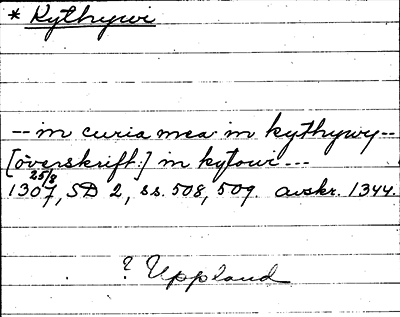 * Kythywi
-- in curia mea in kythywy--
[överskrift:] in kytowi ---
1307 25/8, SD 2, ss. 508, 509. avskr. 1344.
? Uppland